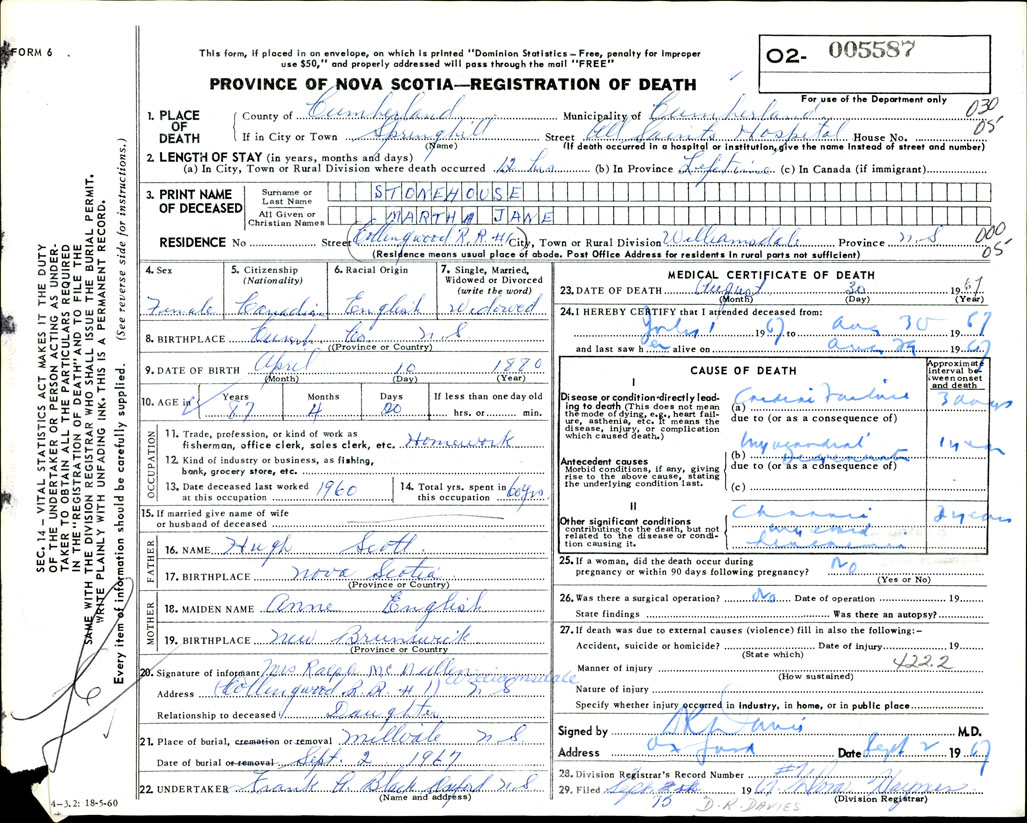 FORM 6
This form, if placed in an envelope, on which is printed "Dominion Statistics – Free, penalty for improper
use $50," and properly addressed will pass through the mail "FREE"
O2- 005587
PROVINCE OF NOVA SCOTIA—REGISTRATION OF DEATH
For use of the Department only
030
05
1. PLACE OF DEATH
County of Cumberland Municipality of Cumberland
If in City or Town Springhill Street All Saints Hospital House No.
(Name) (If death occurred in a hospital or institution, give the name instead of street and number)
2. LENGTH OF STAY (in years, months and days)
(a) In City, Town or Rural Division where death occurred 12 hrs (b) In Province Lifetime (c) In Canada (if immigrant)
3. PRINT NAME OF DECEASED
Surname or Last Name STONEHOUSE
All Given or Christian Names MARTHA JANE
RESIDENCE No Street (Collingwood R.R.#1) City, Town or Rural Division Williamsdale Province N.S
000
05
(Residence means usual place of abode. Post Office Address for residents in rural parts not sufficient)
4. Sex
Female
5. Citizenship (Nationality)
Canadian
6. Racial Origin
English
7. Single, Married, Widowed or Divorced (write the word)
Widowed
8. BIRTHPLACE Cumb. Co. N.S
((Province or Country)
9. DATE OF BIRTH April 10 1880
(Month) (Day) (Year)
10. AGE in Years Months Days If less than one day old
87 4 20 hrs. or min.
OCCUPATION
11. Trade, profession, or kind of work as
fisherman, office clerk, sales clerk, etc. Homework
12. Kind of industry or business, as fishing,
bank, grocery store, etc.
13. Date deceased last worked at this occupation 1960
14. Total yrs. spent in this occupation 60 yrs.
15. If married give name of wife
or husband of deceased
FATHER
16. NAME Hugh Scott.
17. BIRTHPLACE Nova Scotia
(Province or Country)
MOTHER
18. MAIDEN NAME Anne English
19. BIRTHPLACE New Brunswick
(Province or Country
20. Signature of informant Mrs Ralph Mc Mullen
Address (Collingwood R.R # 1) Williamsdale N S
Relationship to deceased Daughter
21. Place of burial, cremation or removal Millvale N S
Date of burial or removal Sept. 2 1967
22. UNDERTAKER Frank A Black Oxford N S
(Name and address)
4–3.2: 18-5-60
MEDICAL CERTIFICATE OF DEATH
23. DATE OF DEATH August 30 1967
(Month) (Day) (Year)
24. I HEREBY CERTIFY that I attended deceased from:
1967 to Aug 30 1967
and last saw her alive on Aug 29 1967
CAUSE OF DEATH
Approximate interval between onset and death
I
Disease or condition directly leading to death (This does not
mean the mode of dying, e.g., heart failure, asthenia, etc. It means the
disease, injury, or complication which caused death.)
(a) Cardiac Failure 3 days
due to (or as a consequence of)
Antecedent causes
Morbid conditions, if any, giving
rise to the above cause, stating
the underlying condition last.
(b) Myocardial Degeneration 1 year
due to (or as a consequence of)
(c)
II
Other significant conditions
contributing to the death, but not
related to the disease or condition causing it.
Chronic 2 years
25. If a woman, did the death occur during
pregnancy or within 90 days following pregnancy? No
(Yes or No)
26. Was there a surgical operation? No Date of operation 19
State findings Was there an autopsy?
27. If death was due to external causes (violence) fill in also the following:–
Accident, suicide or homicide? Date of injury 19
(State which)
Manner of injury 422.2
(How sustained)
Nature of injury
Specify whether injury occurred in industry, in home, or in public place
Signed by Davis M.D.
Address Oxford Date Sept 2 1967
28. Division Registrar's Record Number #7
29. Filed Sept 1967
15 D.R. DAVIES (Division Registrar)
SEC. 14 – VITAL STATISTICS ACT MAKES IT THE DUTY
OF THE UNDERTAKER OR PERSON ACTING AS UNDER-
TAKER TO OBTAIN ALL THE PARTICULARS REQUIRED
IN THE "REGISTRATION OF DEATH" AND TO FILE THE
SAME WITH THE DIVISION REGISTRAR WHO SHALL ISSUE THE BURIAL PERMIT.
WRITE PLAINLY WITH UNFADING INK. THIS IS A PERMANENT RECORD.
Every item of information should be carefully supplied. (See reverse side for instructions.)